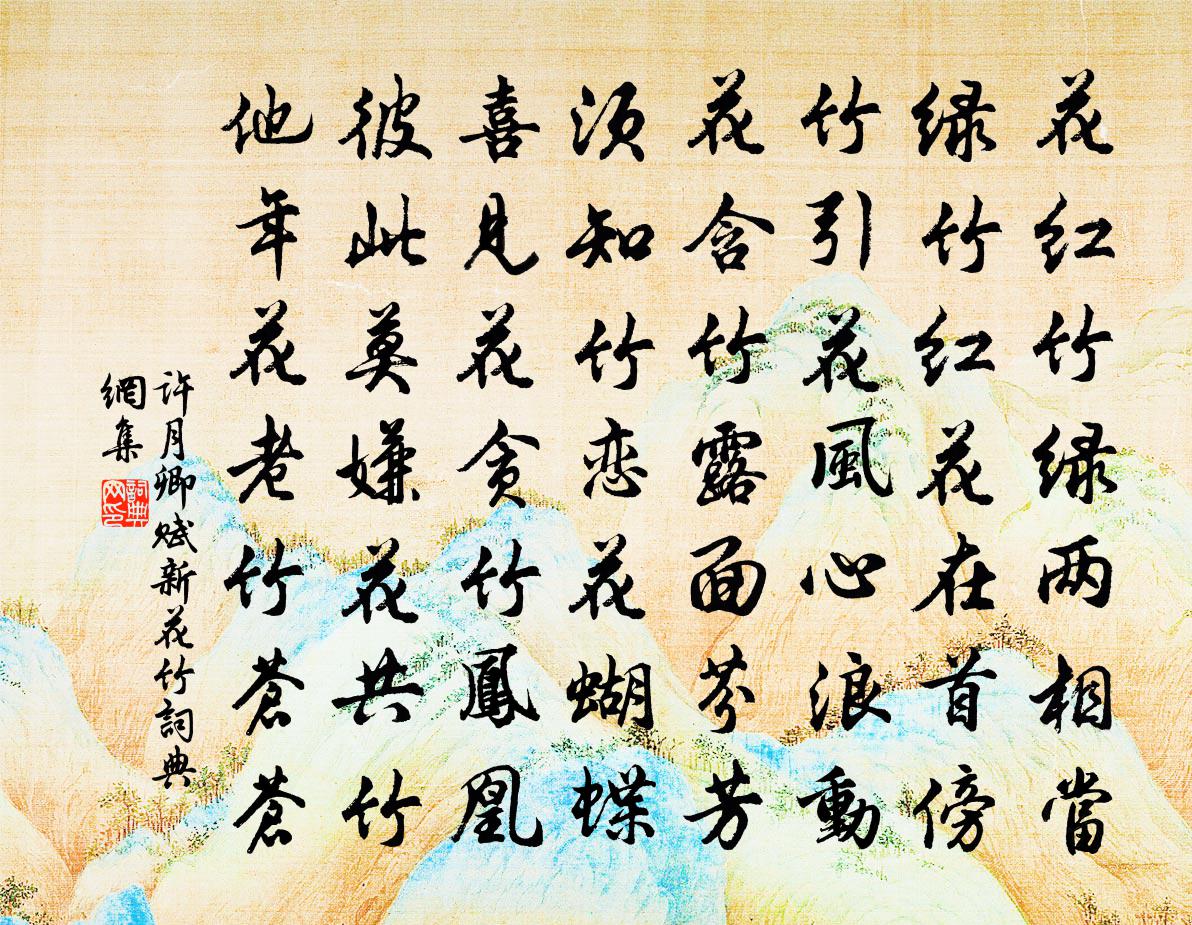 花红竹绿两相當
绿竹红花在首傍
竹引花風心浪動
花含竹露面芬芳
须知竹恋花蝴蝶
喜見花贪竹鳳凰
彼此莫嫌花共竹
他年花老竹蒼蒼
許月卿赋新花竹詞典
網集
詞典
网印